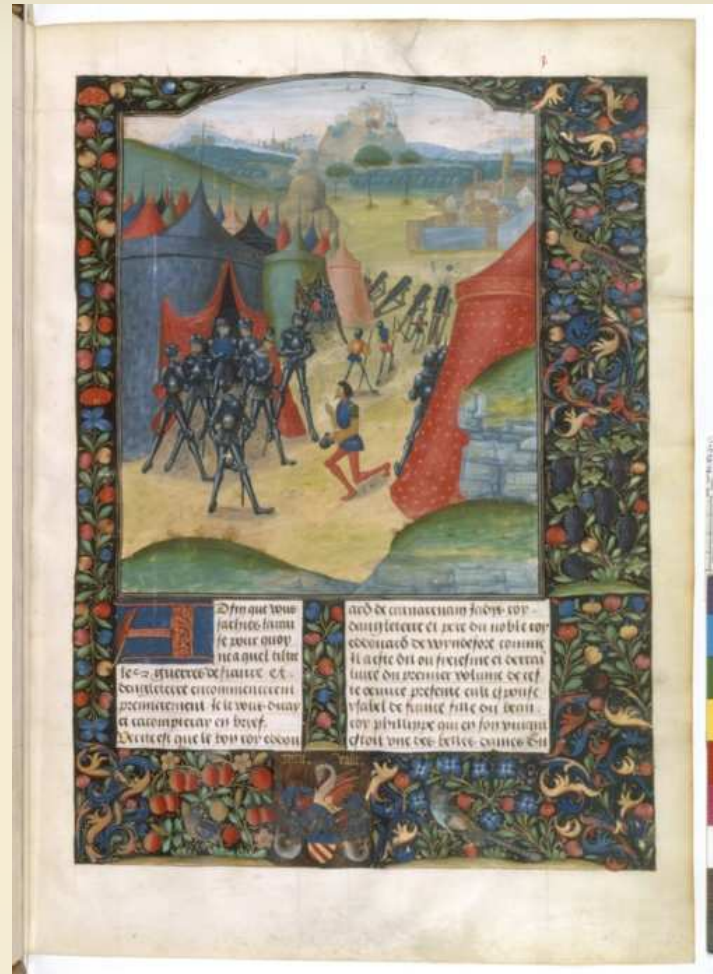 Afin que vous
sachies la cau
se pour quoy
ne a quel tiltre
les guerres de france et
dangleterre encommencerent
premierement Je le vous diray
et racompteray en brief.
Verite est que le bon roy edou
ard de Jadys roy
dangleterre et pere du noble roy
edouard de wyndesore comme
Il a este dit ou et
livre du premier volume de ces
te oeuvre presente eult espouse
ysabel de france fille du beau
roy phillippe qui en son vivant
estoit une des belles dames du